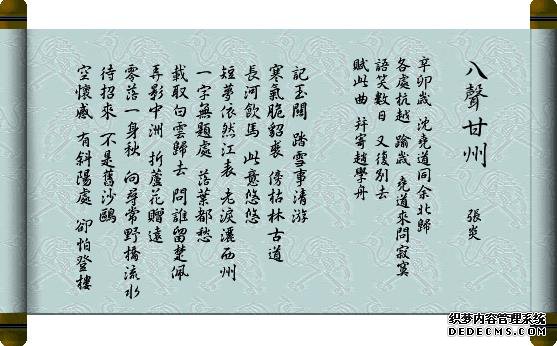 八聲甘州
張炎
辛卯歲 沈堯道同余北歸
各處杭越 踰歲 堯道來問寂寞
語笑數日 又復別去
賦此曲 并寄趙學舟
記玉關 踏雪事清游
寒氣脆貂裘 傍枯林古道
長河飲馬 此意悠悠
短夢依然江表 老淚灑西州
一字無題處 落葉都愁
載取白雲歸去 問誰留楚佩
弄影中洲 折蘆花贈遠
零落一身秋 向尋常野橋流水
待招來 不是舊沙鷗
空懷感 有斜陽處 卻怕登樓
织梦内容管理系统
DEDECMS.COM